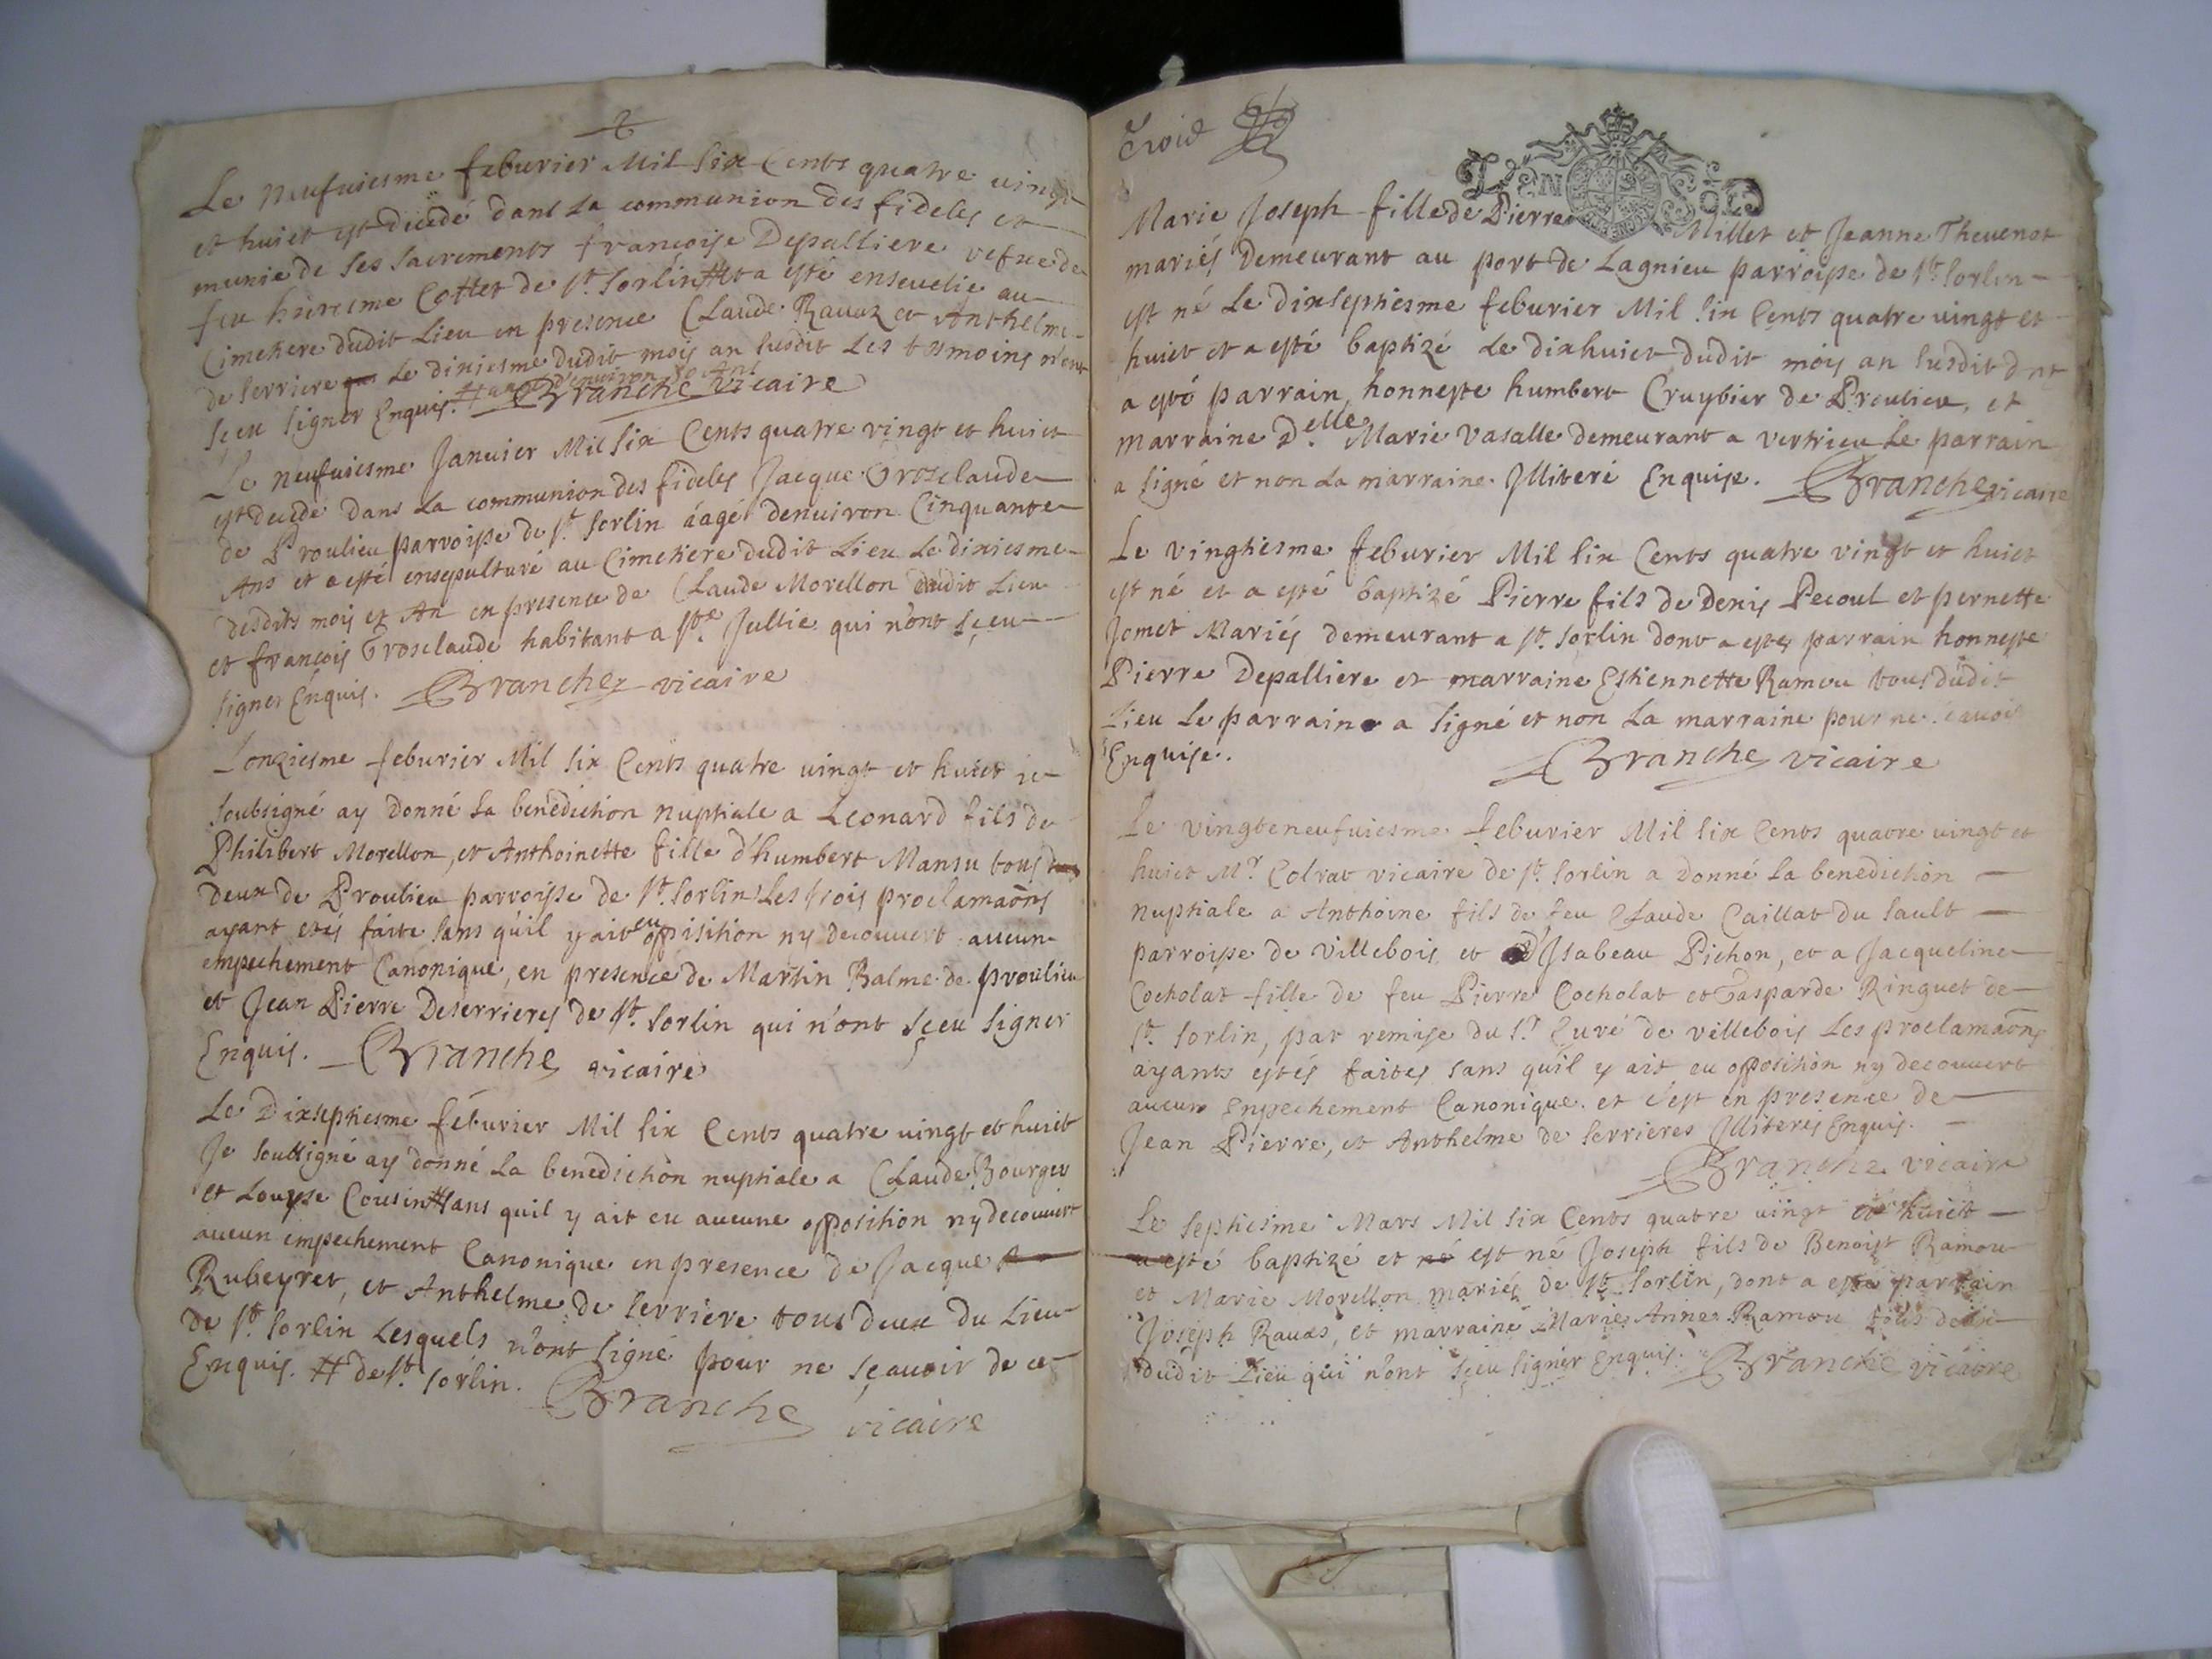 2
Le neufuiesme feburier Mil six Cents quatre vingt
et huict est décédé dans la communion des fideles et
munie de ses sacrements françoise Depalliere vefue de
feu hierosme Cottet de St. Sorlin # et a esté enseuelie au
Cimetiere dudit Lieu en presence Claude Rauaz et Anthelme
de Serriere le diziesme dudit mois an susdit Les tesmoins n'ont
sceu signer Enquis. # aagée d'enuiron Ans
Branche vicaire
Le neufuiesme Januier Mil six Cents quatre vingt et huict
est decedé dans la communion des fideles Jacque Grosclaude
de Proulieu parroisse de St. Sorlin áagé denuiron Cinquante
Ans et a esté ensepulturé au Cimetiere dudit Lieu Le diziesme
desdits mois et An en presence de Claude Morellon dudit Lieu
et françois Grosclaude habitant a Ste. Jullie qui n'ont sceu
signer Enquis. Branche vicaire
Lonziesme feburier Mil six Cents quatre vingt et huict ie
soubsigné ay donné la benediction nuptiale a Leonard fils de
Philibert Morellon, et Anthoinette fille d'humbert Mansu tous
deux de Proulieu parroisse de St. Sorlin Les trois proclamaõns
ayant estés faite sans qu'il y ait eu oppisition ny decouuert aucun
empechement Canonique, en presence de Martin Balme de proulieu
et Jean Pierre Deserrieres de St. Sorlin qui n'ont sceu signer
Enquis. Branche vicaire
Le Dixseptiesme féburier Mil six Cents quatre uingt et huict
Je soussigné ay donné La benediction nuptiale a Claude Bourgey
et Louyse Cousin # sans quil y ait eu aucune opposition ny decouuert
aucun empechement Canonique en presence de Jacque
Rubeyret, et Anthelme de Serriere tous deux du Lieu
de St. Sorlin Lesquels n'ont signé pour ne sçauoir de ce
Enquis. # de St. Sorlin. Branche vicaire
Trois
L'AIN SOLD
Marie Joseph fille de Pierre Millet et Jeanne Theuenot
mariés Demeurant au port de Lagnieu parroisse de St. Sorlin
est né Le dixseptiesme feburier Mil six Cents quatre uingt et
huict et a esté baptizé Le dixhuict dudit mois an susdit dnt
a esté parrain, honneste humbert Cruybier de Proulieu, et
marraine Delle. Marie vasalle demeurant a vertrieu Le parrain
a signé et non La marraine. Illiteré Enquise. Branche vicaire
Le vingtiesme feburier Mil six Cents quatre vingt et huict
est né et a esté baptizé Pierre fils de Denis Pecoul et pernette
Jomet Mariés demeurant a St. Sorlin dont a estés parrain honneste
Pierre Depalliere et marraine Estiennette Ramou tous dudit
Lieu Le parrain a signé et non La marraine pour ne scauoir
Enquise.
Branche vicaire
Le vingteneufuiesme feburier Mil six Cents quatre uingt et
huict Mr. Colrat vicaire de St. Sorlin a donné La benediction
nuptiale a Anthoine fils de feu Claude Caillat du Sault
parroisse de Villebois, et d'Isabeau Pichon, et a Jacqueline
Cocholat fille de feu Pierre Cocholat et Gasparde Ringuet de
St. Sorlin, par remise du Sr. Curé de villebois Les proclamaõns
ayants estés faites sans qu'il y ait eu opposition ny decouuert
aucun Enpechement Canonique. et c'est en presence de
Jean Pierre, et Anthelme de Serrieres Illiterés Enquis.
Branche vicaire
Le septiesme Mars Mil six Cents quatre uingt et huict
a esté baptizé et né est né Joseph fils de Benoist Ramou
et Marie Morellon mariés de St. Sorlin, dont a esté parrain
Joseph Rauas, et marraine Marie Anne Ramou tous deux
dudit Lieu qui n'ont sceu signer Enquis. Branche vicaire